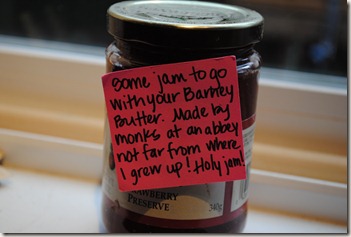 Some jam to go
with your Barney
Butter. Made by
monks at an abbey
not far from where
I grew up! Holy jam!
STRAWBERRY
PRESERVE
340g